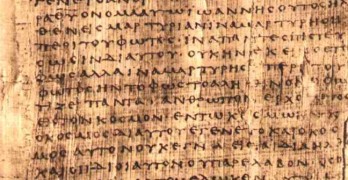 ΡΑ ΘΥ ΟΝΟΜΑ ΑΥΤΩ ΙΩΑΝΝΗϹ ΟΥΤΟϹ Η
ΘΕΝ ΕΙϹ ΜΑΡΤΥΡΙΑΝ ΙΝΑ ΜΑΡΤΥΡΗϹΗ
ΠΕΡΙ ΤΟΥ ΦΩΤΟϹ ΙΝΑ ΠΑΝΤΕϹ ΠΙϹΤΕΥ
ϹΩϹΙΝ ΔΙ ΑΥΤΟΥ ΟΥΚ ΗΝ ΕΚΕΙΝΟϹ ΤΟ
ΦΩϹ ΑΛΛΑ ΙΝΑ ΜΑΡΤΥΡΗϹΗ ΠΕΡΙ
ΦΩΤΟϹ ΗΝ ΤΟ ΦΩϹ ΤΟ
ΤΙΖΕΙ ΠΑΝΤΑ ΑΝΘΡΩΠΟΝ
ΕΙϹ ΤΟΝ ΚΟϹΜΟΝ ΕΝ ΤΩ ΚΟϹΜΩ ΗΝ
Ο ΚΟϹΜΟϹ ΔΙ ΑΥΤΟΥ ΕΓΕΝΕΤΟ ΚΑΙ Ο ΚΟϹ
ΜΟϹ ΑΥΤΟΝ ΟΥΚ ΕΓΝΩ ΕΙϹ ΤΑ ΙΔΙΑ ΗΛ
ΚΑΙ ΟΙ ΙΔΙΟΙ ΑΥΤΟΝ ΟΥ ΠΑΡΕΛΑΒΟΝ